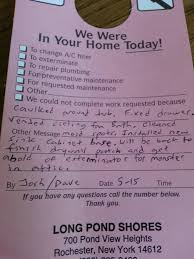 We Were
In Your Home Today!
To change A/C filter
To exterminate
To repair plumbing
For preventative maintenance
For requested maintenance
Other
We could not complete work requested because
Caulked around tub, Fixed drawer,
Vented ceiling for Bath, Cleaned
Other Message most spots, Installed new
Sink Cabinet base, will be back to
finish drywall patch and get
ahold of exterminator for monster
in attic
By Josh/Dave Date 5-15 Time
If you have any questions call the number below.
Thank you.
LONG POND SHORES
700 Pond View Heights
Rochester, NY 14612